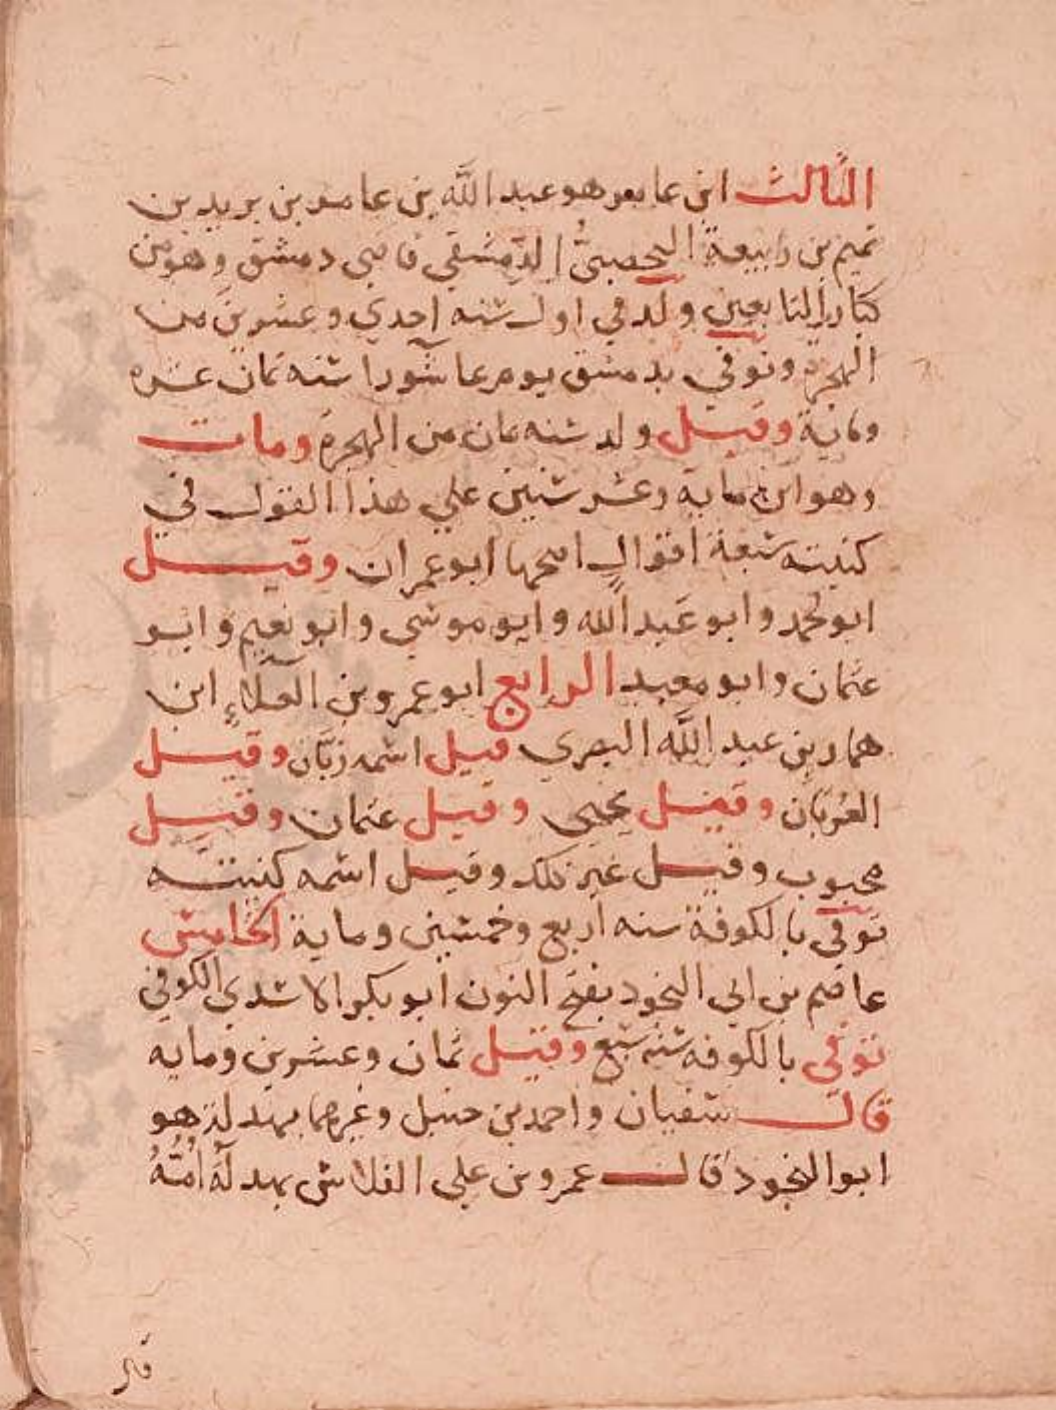 الثالث ابن عامر هو عبد الله بن عامر بن يزيد بن
تميم بن رابيعة اليحصبيُّ الدمشقي قاضي دمشق وهو من
كبار التابعين ولد في اول سنه احدي وعشرين من
الهجرة وتوفي بدمشق يوم عاشورا سنه ثمان عشره
ومائة وقيل ولد سنه ثمان من الهجرة ومات
وهو ابن مايه وعشر سنين علي هذا القول في
كنيته سبعة اقوال اصحها ابو عمران وقيل
ابو محمد وابو عبد الله وابو موسي وابو نعيم وابو
عثمان وابو معبد الرابع ابو عمرو بن العلاء ابن
عمار بن عبد الله البصري قيل اسمه زبَّان وقيل
العريان وقيل يحيي وقيل عثمان وقيل
محبوب وقيل غير ذلك وقيل اسمه كنيته
توفي بالكوفة سنه أربع وخمسين ومايه الخامس
عاصم بن ابي النجود بفتح النون ابو بكر الاسدي الكوفي
توفي بالكوفه سنه سبع وقيل ثمان وعشرين ومايه
قال سفيان واحمد بن حنبل وغيرهما بهدلة هو
ابو النجود قال عمرو بن علي الفلاس بهدلة امُّهُ